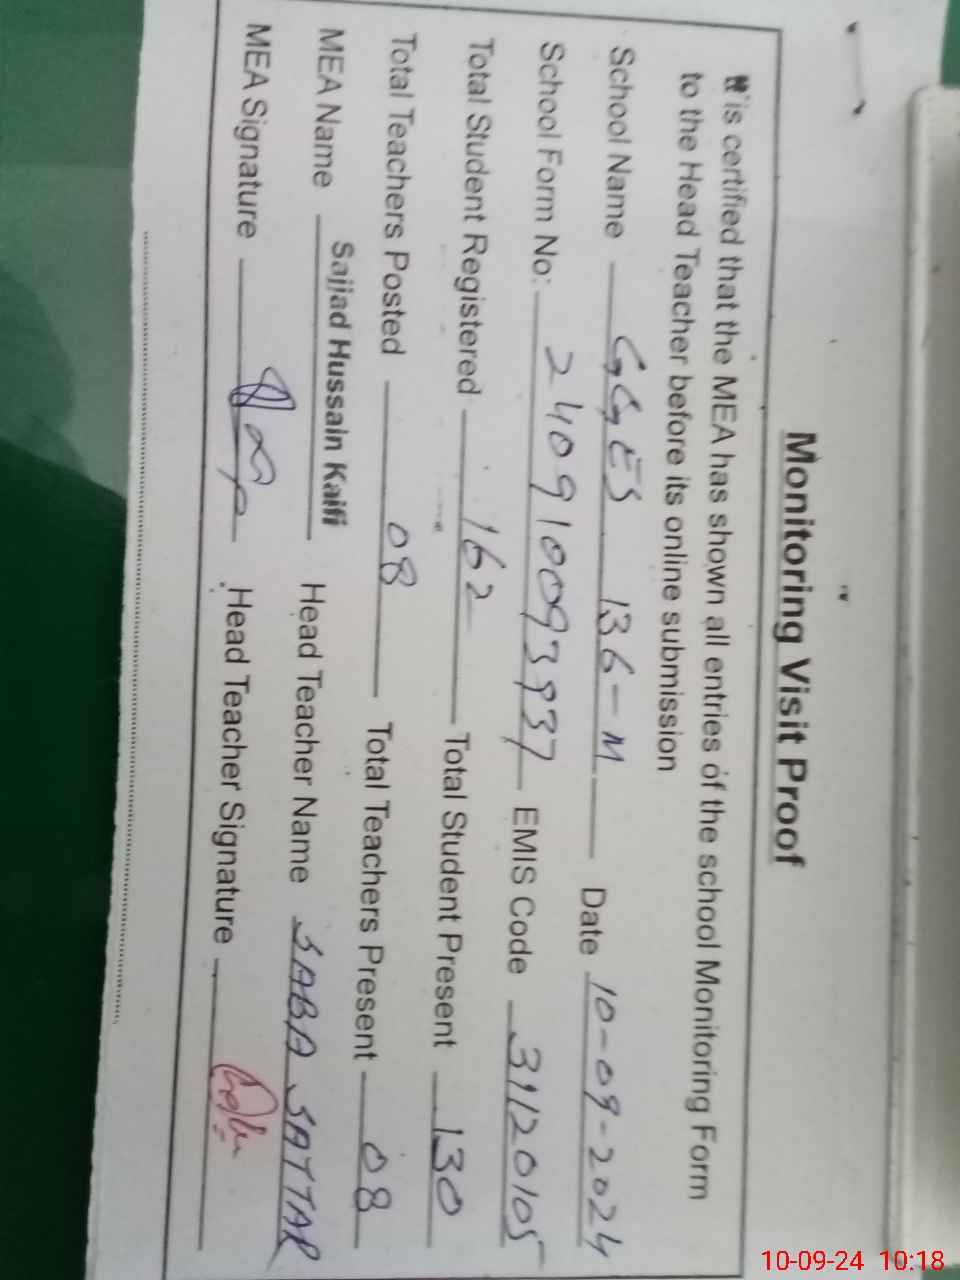 Monitoring Visit Proof
It is certified that the MEA has shown all entries of the school Monitoring Form
to the Head Teacher before its online submission
School Name GGES 136-M Date 10-09-2024
School Form No: 240910093937 EMIS Code 31120105
Total Student Registered 162 Total Student Present 130
Total Teachers Posted 08 Total Teachers Present 08
MEA Name Sajjad Hussain Kaifi Head Teacher Name SABA SATTAR
MEA Signature Head Teacher Signature
10-09-24 10:18